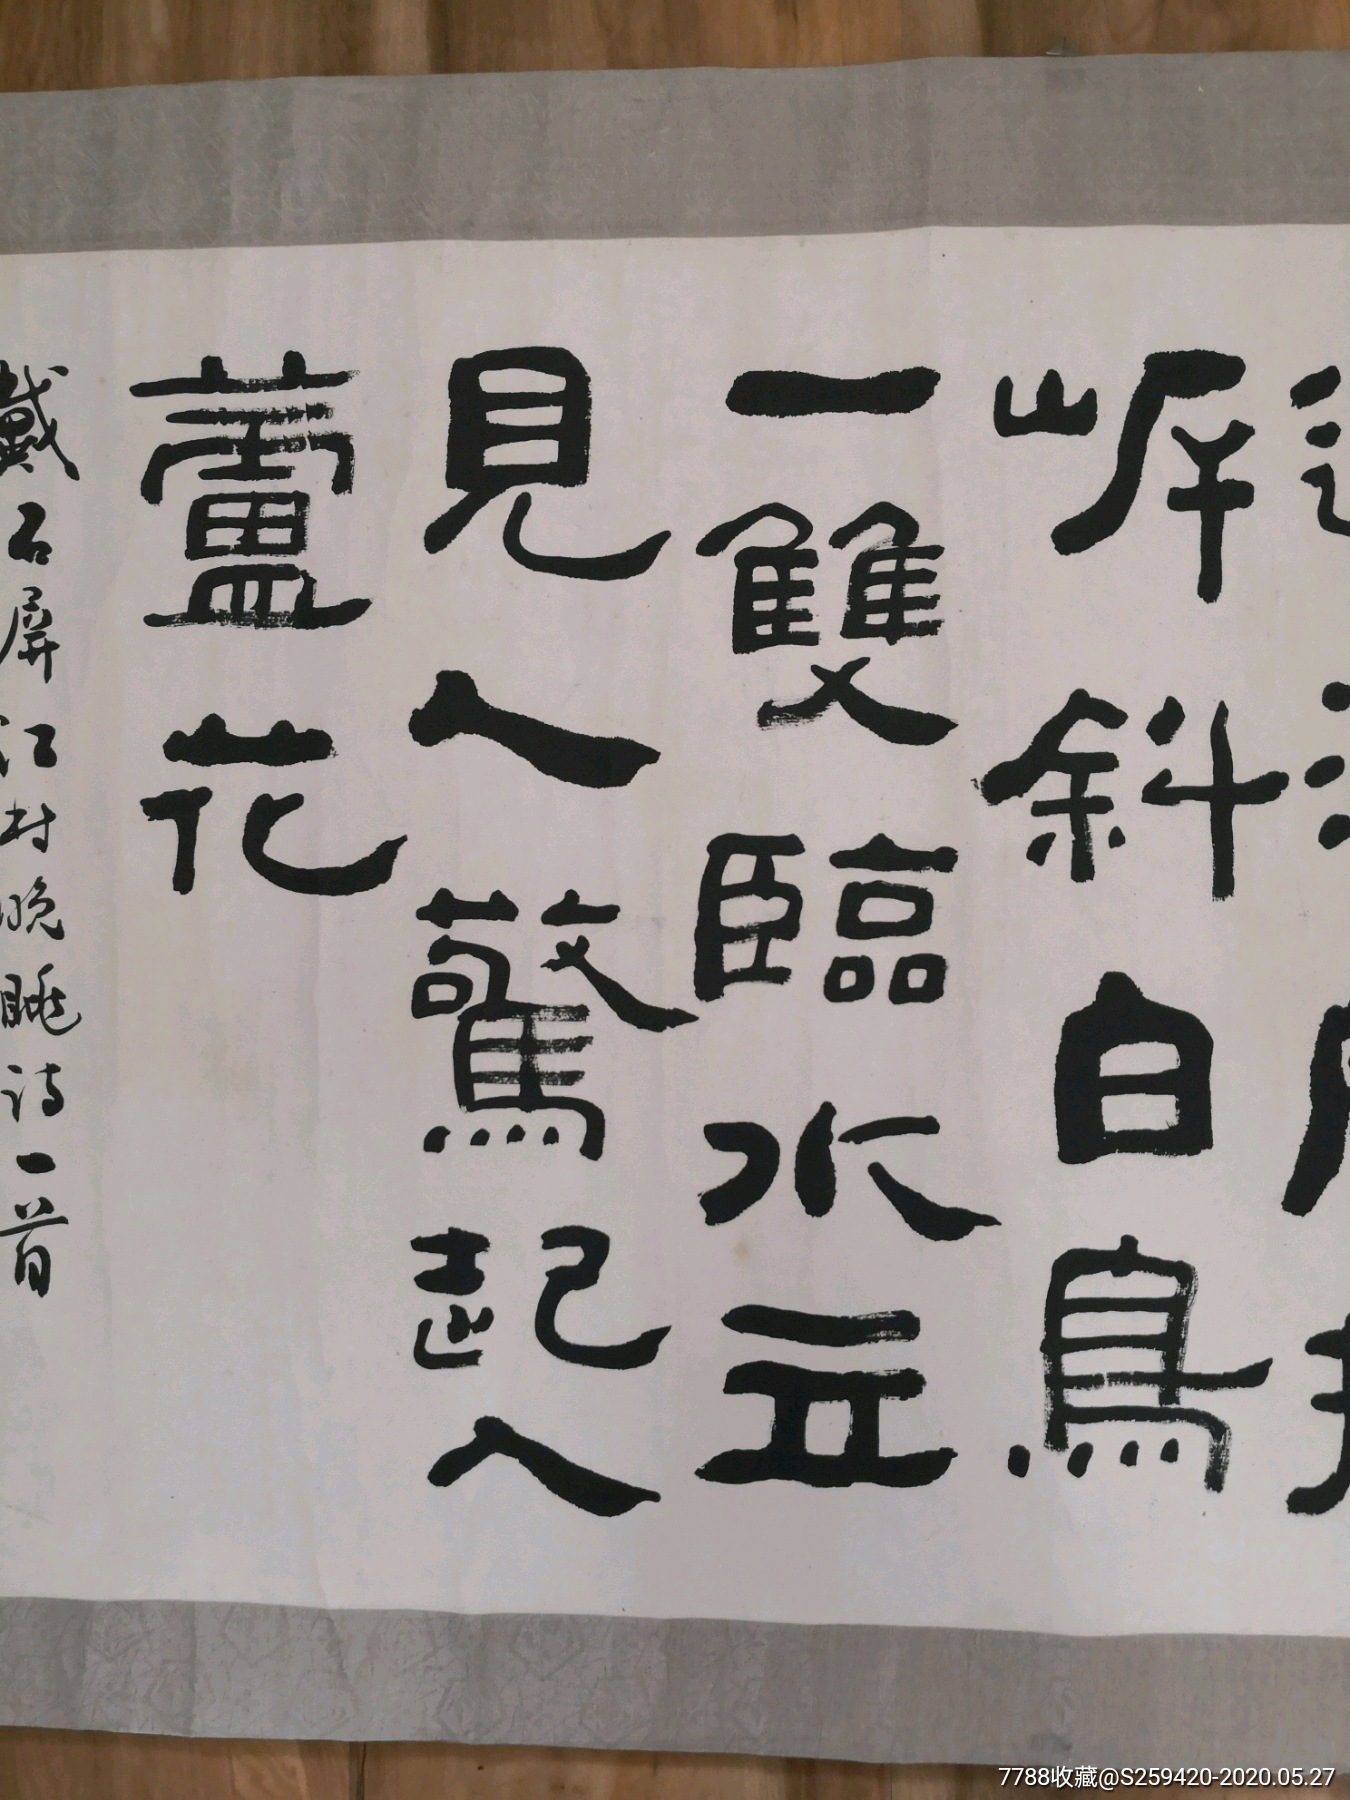 岸斜白鳥
一雙臨水立
見人驚起入
蘆花
戴石屏江村晚眺詩一首
7788收藏@S259420-2020.05.27